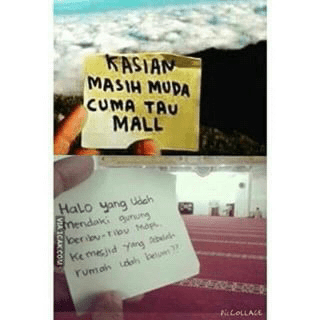 KASIAN
MASIH MUDA
CUMA TAU
MALL
HaLo yang Udah
mendaki gunung
beribu-ribu Mdpl.
Ke mesjid yang sebelah
rumah udah belum??
VIA 1CAK.COM
PicCOLLAGE